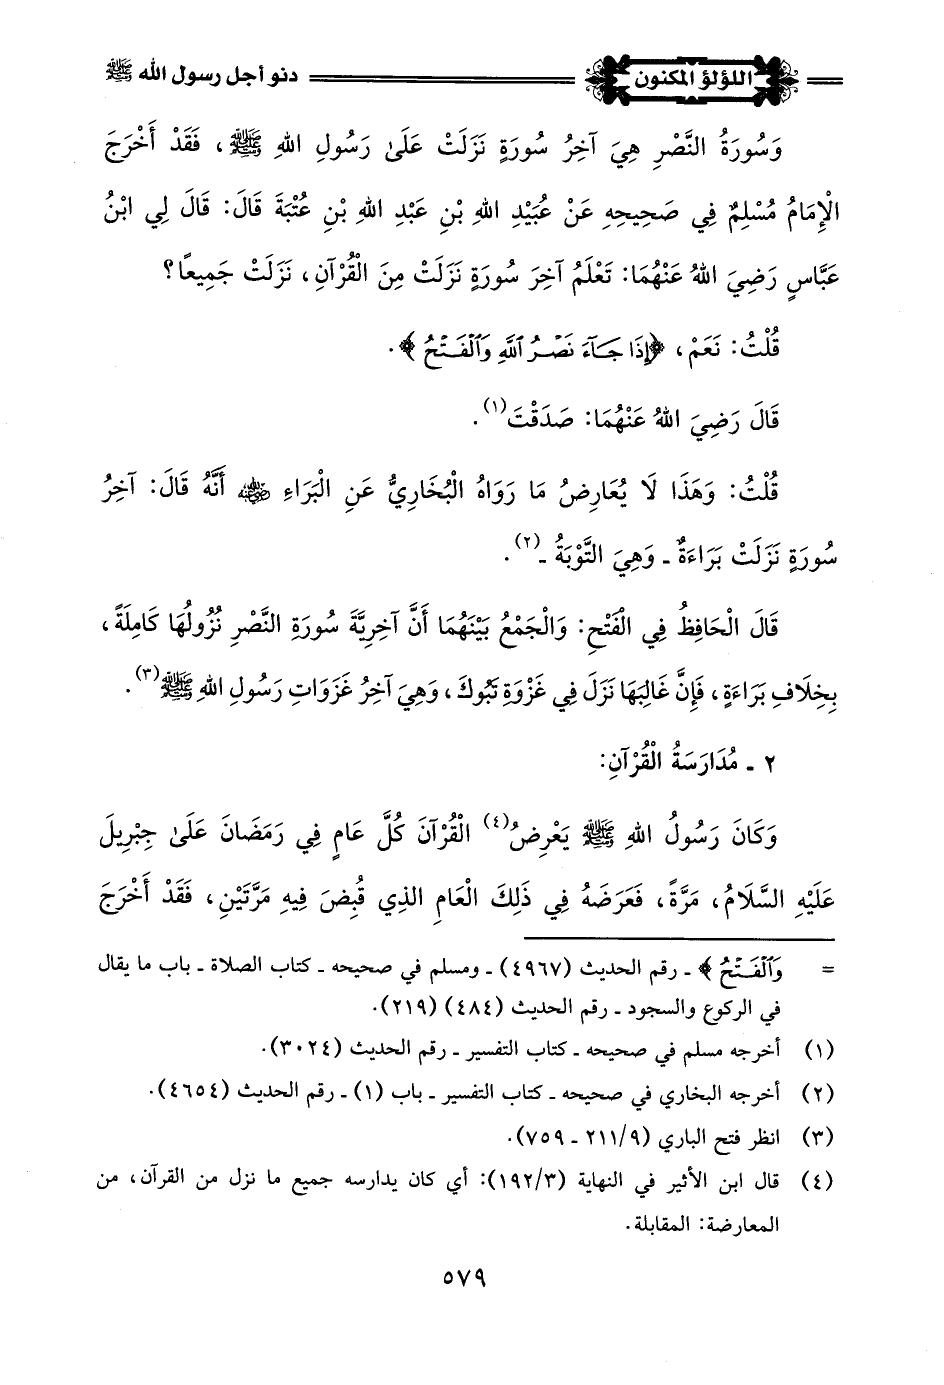 اللؤلؤ المكنون دنو أجل رسول الله ﷺ
وَسُورَةُ النَّصْرِ هِيَ آخِرُ سُورَةٍ نَزَلَتْ عَلَىٰ رَسُولِ اللهِ ﷺ، فَقَدْ أَخْرَجَ
الْإِمَامُ مُسْلِمٌ فِي صَحِيحِهِ عَنْ عُبَيْدِ اللهِ بْنِ عَبْدِ اللهِ بْنِ عُتْبَةَ قَالَ: قَالَ لِي ابْنُ
عَبَّاسٍ رَضِيَ اللهُ عَنْهُمَا: تَعْلَمُ آخِرَ سُورَةٍ نَزَلَتْ مِنَ الْقُرْآنِ، نَزَلَتْ جَمِيعًا؟
قُلْتُ: نَعَمْ، ﴿إِذَا جَآءَ نَصْرُ ٱللَّهِ وَٱلْفَتْحُ﴾.
قَالَ رَضِيَ اللهُ عَنْهُمَا: صَدَقْتَ(١).
قُلْتُ: وَهَذَا لَا يُعَارِضُ مَا رَوَاهُ الْبُخَارِيُّ عَنِ الْبَرَاءِ رضي الله عنه أَنَّهُ قَالَ: آخِرُ
سُورَةٍ نَزَلَتْ بَرَاءَةٌ ـ وَهِيَ التَّوْبَةُ ـ(٢).
قَالَ الْحَافِظُ فِي الْفَتْحِ: وَالْجَمْعُ بَيْنَهُمَا أَنَّ آخِرِيَّةَ سُورَةِ النَّصْرِ نُزُولُهَا كَامِلَةً،
بِخِلَافِ بَرَاءَةٍ، فَإِنَّ غَالِبَهَا نَزَلَ فِي غَزْوَةِ تَبُوكَ، وَهِيَ آخِرُ غَزَوَاتِ رَسُولِ اللهِ ﷺ(٣).
٢ ـ مُدَارَسَةُ الْقُرْآنِ:
وَكَانَ رَسُولُ اللهِ ﷺ يَعْرِضُ(٤) الْقُرْآنَ كُلَّ عَامٍ فِي رَمَضَانَ عَلَىٰ جِبْرِيلَ
عَلَيْهِ السَّلَامُ، مَرَّةً، فَعَرَضَهُ فِي ذَلِكَ الْعَامِ الذِي قُبِضَ فِيهِ مَرَّتَيْنِ، فَقَدْ أَخْرَجَ
= وَٱلْفَتْحُ﴾ ـ رقم الحديث (٤٩٦٧) ـ ومسلم في صحيحه ـ كتاب الصلاة ـ باب ما يقال
في الركوع والسجود ـ رقم الحديث (٤٨٤) (٢١٩).
(١) أخرجه مسلم في صحيحه ـ كتاب التفسير ـ رقم الحديث (٣٠٢٤).
(٢) أخرجه البخاري في صحيحه ـ كتاب التفسير ـ باب (١) ـ رقم الحديث (٤٦٥٤).
(٣) انظر فتح الباري (٢١١/٩ ـ ٧٥٩).
(٤) قال ابن الأثير في النهاية (١٩٢/٣): أي كان يدارسه جميع ما نزل من القرآن، من
المعارضة: المقابلة.
٥٧٩